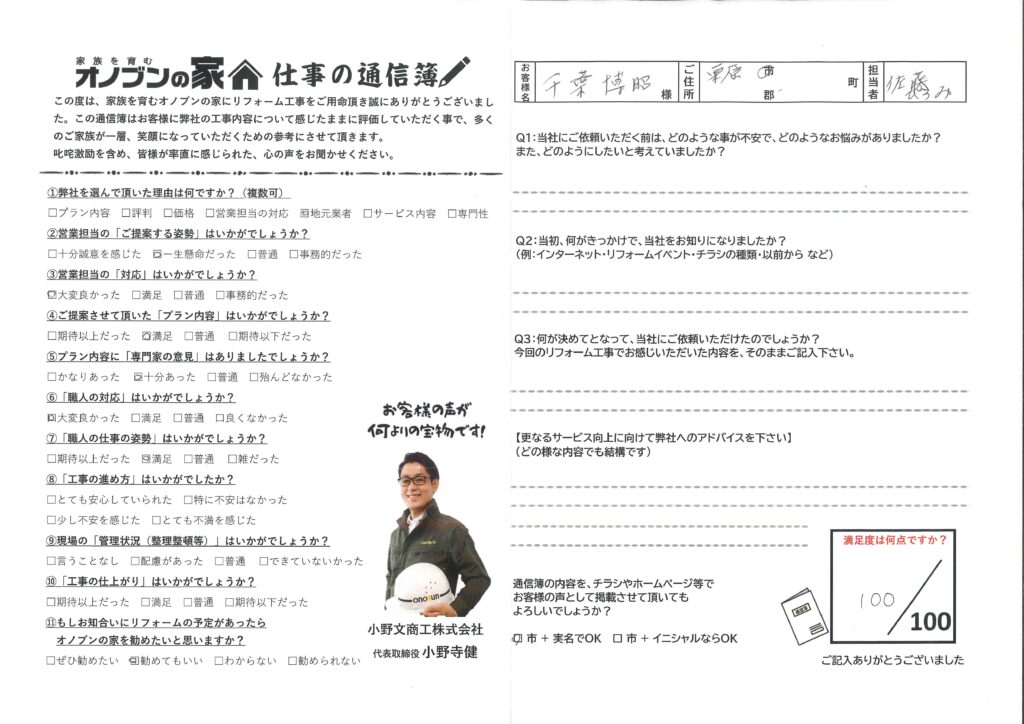 家族を育む
オノブンの家 仕事の通信簿
この度は、家族を育むオノブンの家にリフォーム工事をご用命頂き誠にありがとうございまし
た。この通信簿はお客様に弊社の工事内容について感じたままに評価していただく事で、多く
のご家族が一層、笑顔になっていただくための参考にさせて頂きます。
叱咤激励を含め、皆様が率直に感じられた、心の声をお聞かせください。
①弊社を選んで頂いた理由は何ですか？（複数可）
□プラン内容 □評判 □価格 □営業担当の対応 ☑地元業者 □サービス内容 □専門性
②営業担当の「ご提案する姿勢」はいかがでしょうか？
□十分誠意を感じた ☑一生懸命だった □普通 □事務的だった
③営業担当の「対応」はいかがでしょうか？
☑大変良かった □満足 □普通 □事務的だった
④ご提案させて頂いた「プラン内容」はいかがでしょうか？
□期待以上だった ☑満足 □普通 □期待以下だった
⑤プラン内容に「専門家の意見」はありましたでしょうか？
□かなりあった ☑十分あった □普通 □殆んどなかった
⑥「職人の対応」はいかがでしょうか？
☑大変良かった □満足 □普通 □良くなかった
⑦「職人の仕事の姿勢」はいかがでしょうか？
□期待以上だった ☑満足 □普通 □雑だった
⑧「工事の進め方」はいかがでしたか？
□とても安心していられた □特に不安はなかった
□少し不安を感じた □とても不満を感じた
⑨現場の「管理状況（整理整頓等）」はいかがでしょうか？
□言うことなし □配慮があった □普通 □できていないかった
⑩「工事の仕上がり」はいかがでしょうか？
□期待以上だった □満足 □普通 □期待以下だった
⑪もしお知合いにリフォームの予定があったら
オノブンの家を勧めたいと思いますか？
□ぜひ勧めたい ☑勧めてもいい □わからない □勧められない
お客様の声が
何よりの宝物です!
onobun
小野文商工株式会社
代表取締役 小野寺健
お客様名 千葉 博昭 様 ご住所 栗原 市 郡 町 担当者 佐藤
Q1：当社にご依頼いただく前は、どのような事が不安で、どのようなお悩みがありましたか？
また、どのようにしたいと考えていましたか？
Q2：当初、何がきっかけで、当社をお知りになりましたか？
（例：インターネット・リフォームイベント・チラシの種類・以前から など）
Q3：何が決めてとなって、当社にご依頼いただけたのでしょうか？
今回のリフォーム工事でお感じいただいた内容を、そのままご記入下さい。
【更なるサービス向上に向けて弊社へのアドバイスを下さい】
（どの様な内容でも結構です）
満足度は何点ですか？
100/100
通信簿の内容を、チラシやホームページ等で
お客様の声として掲載させて頂いても
よろしいでしょうか？
☑ 市 + 実名でOK □ 市 + イニシャルならOK
ご記入ありがとうございました